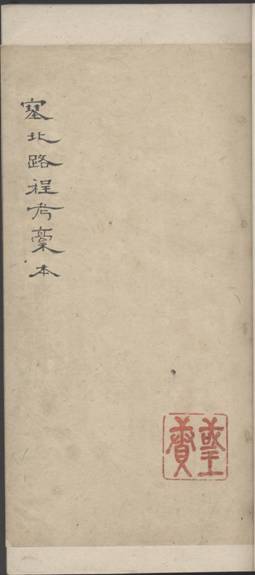 塞北路程考稾本